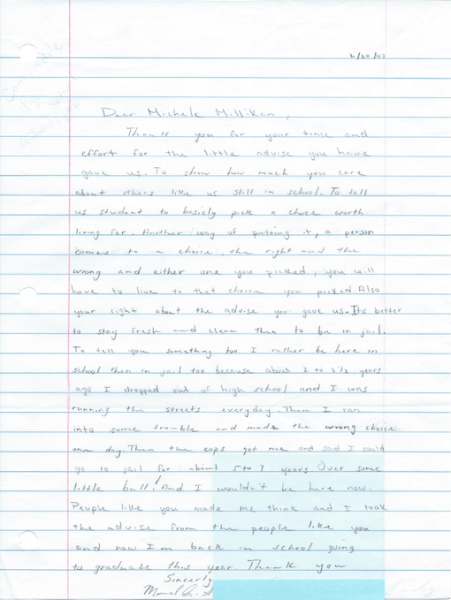 2/20/07
Dear Michele Millikan,
Thank you for your time and
effort for the little advise you have
gave us. To show how much you care
about others like us still in school. To tell
us student to basicly pick a choice worth
living for. Another way of putting it, a person
comes to a choice, the right and the
wrong and either one you picked, you will
have to live to that choice you picked. Also
your right about the advise you gave us. Its better
to stay fresh and clean then to be in jail.
To tell you something too I rather be here in
school then in jail too because about 2 to 2 1/2 years
ago I dropped out of high school and I was
running the streets everyday. Then I ran
into some trouble and made the wrong choice
one day. Then the cops got me and said I could
go to jail for about 5 to 7 years Over some
little bull! And I wouldn't be here now.
People like you made me think and I took
the advise from the people like you
and now I'm back in school going
to graduate this year. Thank you
Sincerly